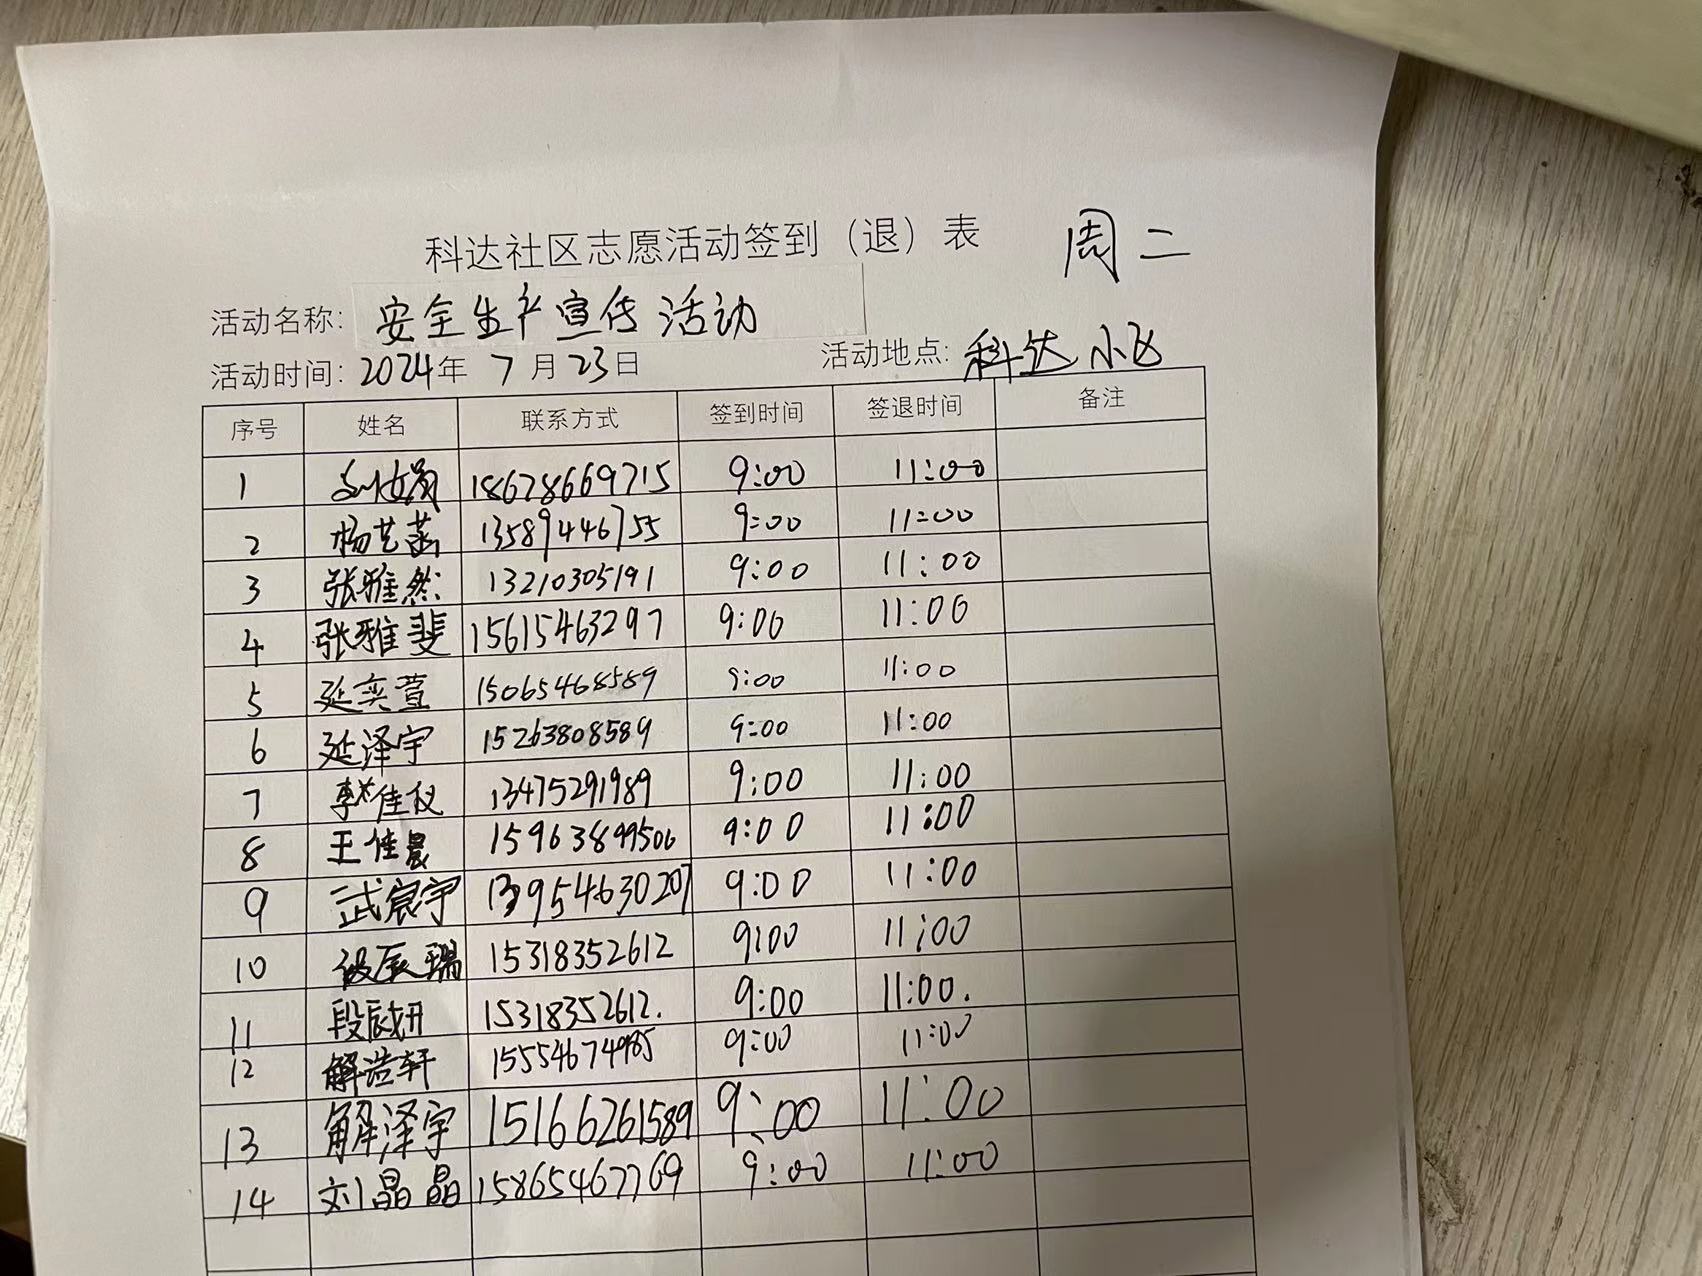 科达社区志愿活动签到（退）表 周二
活动名称: 安全生产宣传活动
活动时间: 2024年 7月23日 活动地点: 科达小区
序号 姓名 联系方式 签到时间 签退时间 备注
1 18678669715 9:00 11:00
2 杨艺菡 13589446755 9:00 11:00
3 张雅然 13210305191 9:00 11:00
4 张雅斐 15615463297 9:00 11:00
5 延奕萱 15065468589 9:00 11:00
6 延泽宇 15263808589 9:00 11:00
7 李佳仪 13475291989 9:00 11:00
8 王佳晨 15963899506 9:00 11:00
9 武宸宇 13954630207 9:00 11:00
10 段辰瑞 15318352612 9:00 11:00
11 段辰妍 15318352612. 9:00 11:00.
12 解浩轩 15554674985 9:00 11:00
13 解泽宇 15166261589 9:00 11:00
14 刘晶晶 15865467769 9:00 11:00